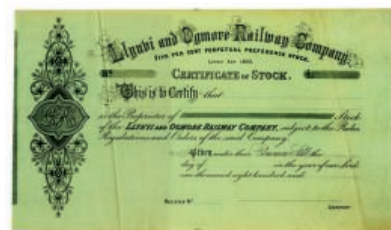 Llynvi and Ogmore Railway Company
FIVE PER CENT PERPETUAL PREFERENCE STOCK.
CERTIFICATE OF STOCK.
This is to Certify that
is the Proprietor of Stock
of the LLYNVI AND OGMORE RAILWAY COMPANY, subject to the Rules
Regulations and Orders of the said Company.
Given under their Common Seal the
day of in the year of our Lord
one thousand eight hundred and